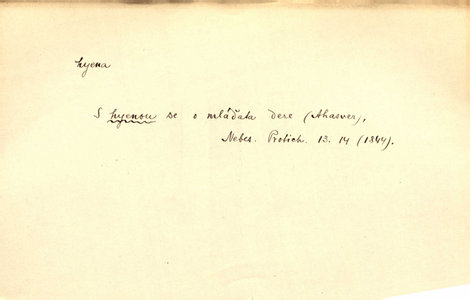 hyena
S hyenou se o mláďata dere (Ahasver),
Nebes. Protich. 13. 14 (1844).